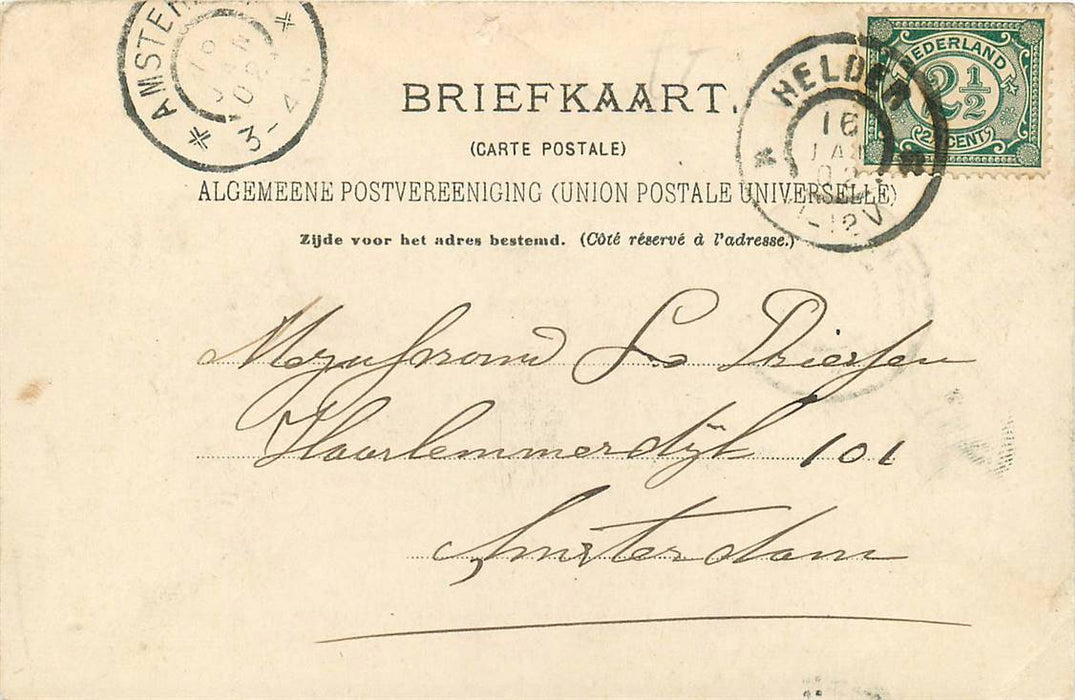 AMSTER
16
JAN
02
3-4
HELDER
16
JAN
02
11-12V
NEDERLAND
2½
2½ CENT
BRIEFKAART.
(CARTE POSTALE)
ALGEMEENE POSTVEREENIGING (UNION POSTALE UNIVERSELLE)
Zijde voor het adres bestemd. (Côté réservé à l'adresse.)
Mejufrouw S. Driessen
Haarlemmerdijk 101
Amsterdam